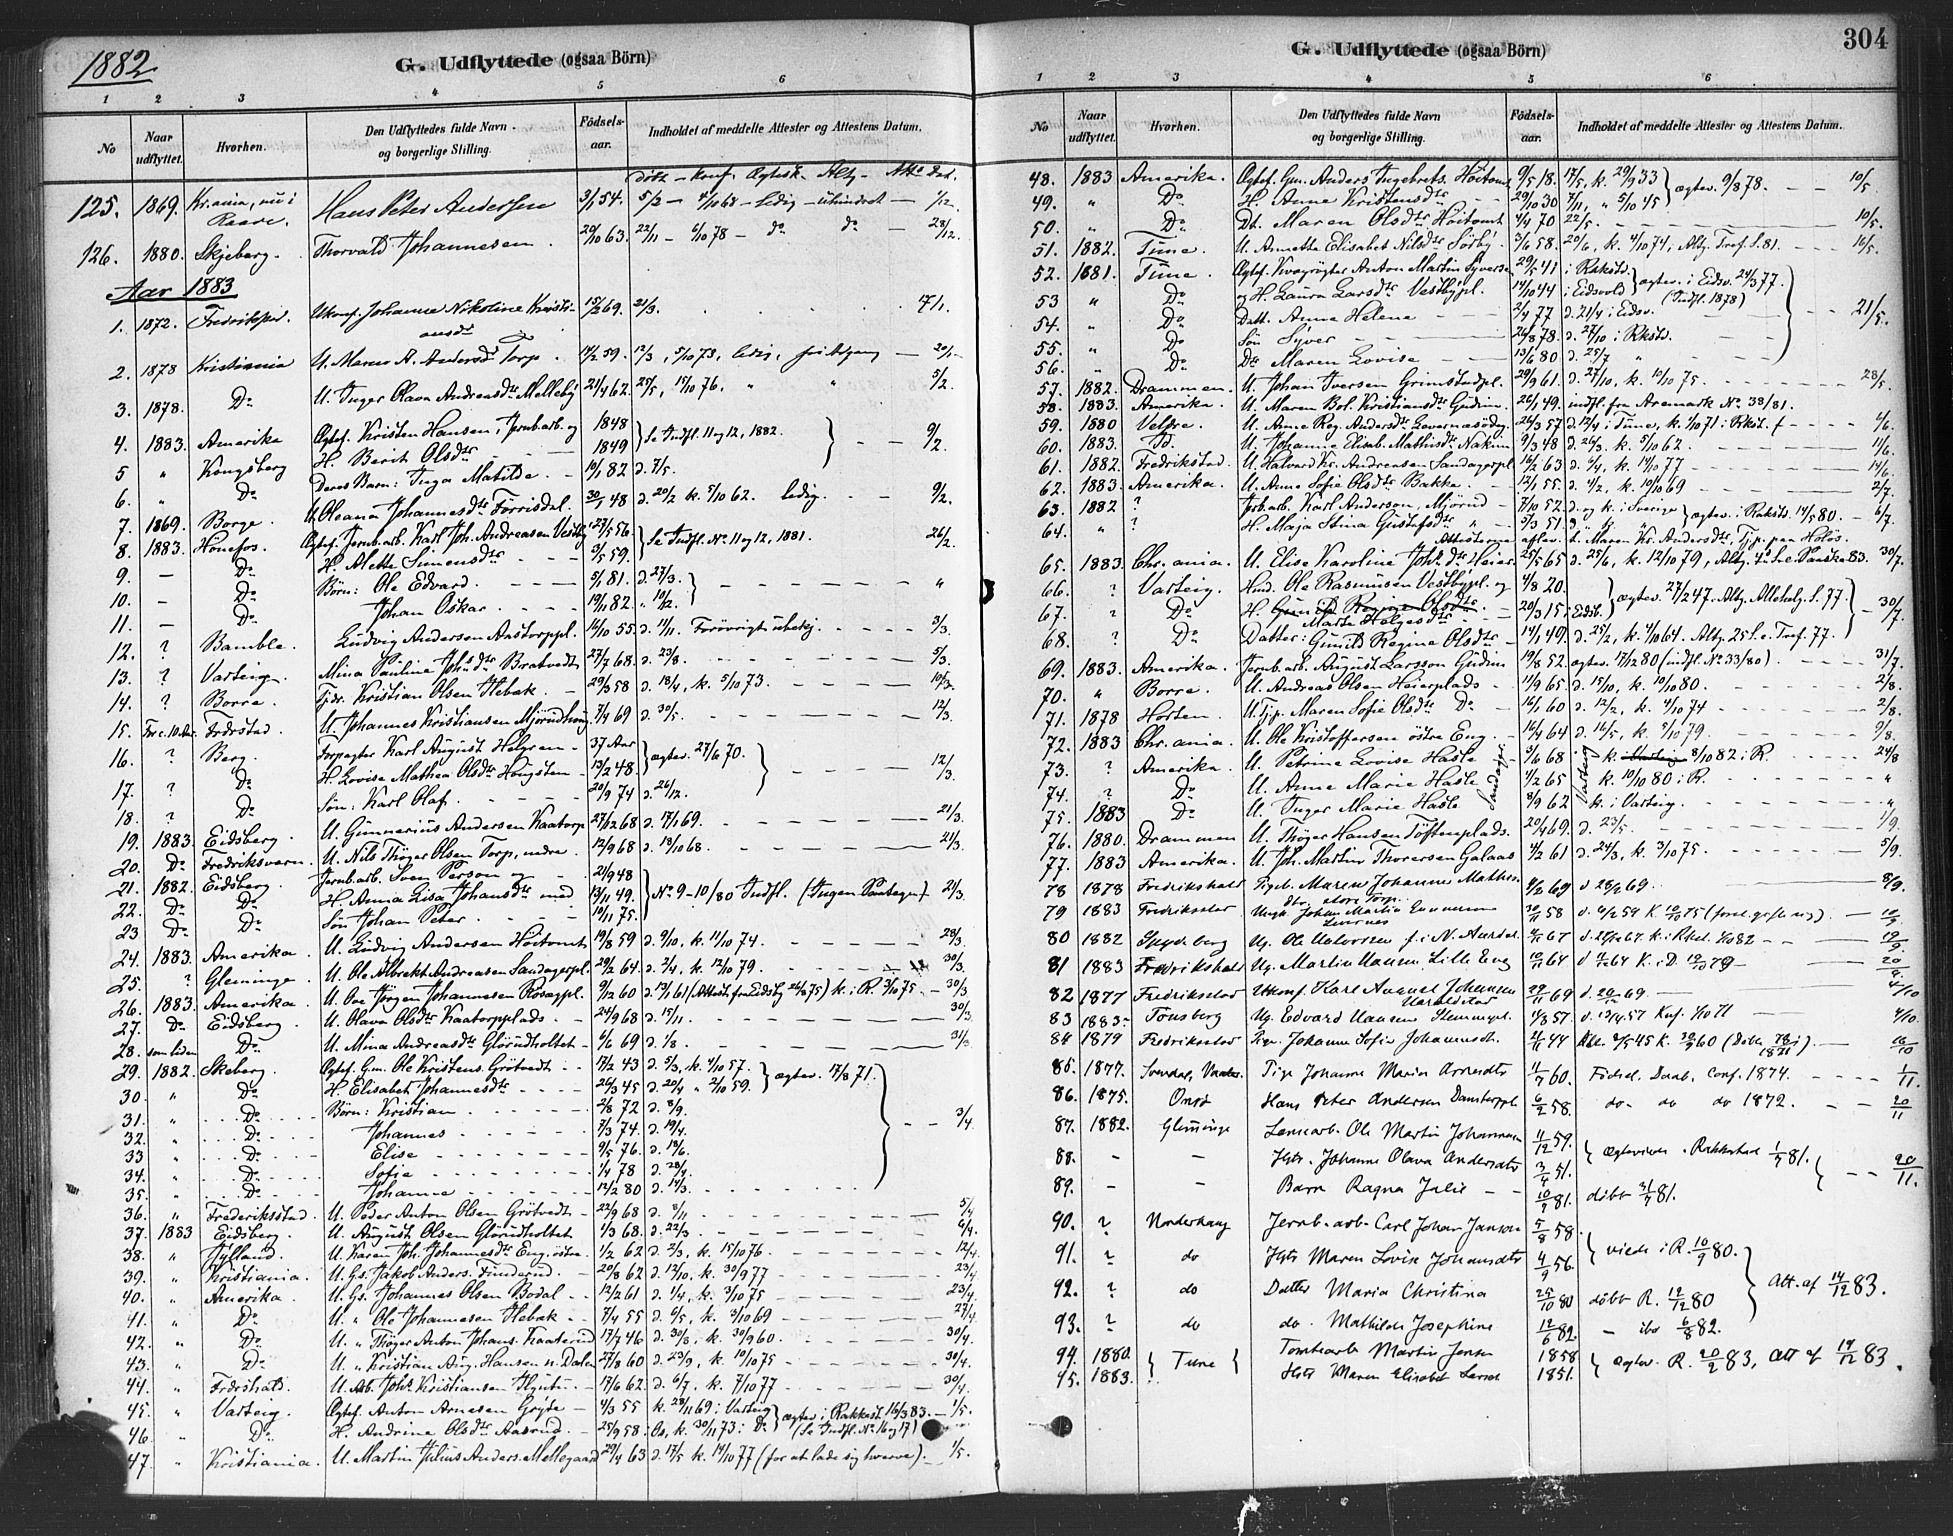 1882
G. Udflyttede (ogsaa Börn)
1 2 3 4 5 6
No
Naar udflyttet.
Hvorhen.
Den Udflyttedes fulde Navn og borgerlige Stilling.
Födsels-aar.
Indholdet af meddelte Attester og Attestens Datum.
125. 1869. Kr.ania, nu i Hans Peter Andersen 3/1 54. 5/3 — 4/10 68 — ledig — uhindret — 1/12.
126. 1880. Skjeberg. Thorvald Johannesen 29/10 63. 22/11 — 6/10 78 — do do — 28/12.
Aar 1883
1. 1872. Fredrikstad. Ukonf. Johanne Nikoline Kristiansdr 15/2 69. 21/3.
2. 1878 Kristiania U. Maren A. Andersdr Torp 14/2 59. 12/3, 5/10 73, ledig, 20/1
3. 1878. Do U. Inger Olava Andreasdr Melleby 21/4 62. 25/5, 15/10 76. " " 5/2.
4. 1883. Amerika Ægtef. Kristen Hansen, Jernb.arb. og 1848 Se Indfl. 11 og 12, 1882. — 9/2.
5 " Kongsberg H. Berit Olsdtr 1849
6. " Do Deres Barn: Inga Matilde 10/1 82 d. 7/5.
7. 1869. Borge. U. Oleana Johannesdr Torrisdal 30/1 48 d. 20/2 k. 5/10 62. ledig. 9/2.
8. 1883. Hønefos. Ægtef. Jernb.arb. Karl Joh. Andreasen Vestby 27/5 56. Se Indfl. No. 11 og 12, 1881. 26/2.
9. — Do H. Alette Simensdtr 3/5 59.
10. — Do Børn: Ole Edvard 5/1 81. d. 27/3.
11. — Do Johan Oskar 19/11 82. " 10/12.
12. ? Bamble. Ludvig Andersen Aastorppl. 16/10 55. d. 11/11. Forøvrigt ubekj. 3/3.
13. ? Varteig. Mina Pauline Johsdtr Bratvedt 27/7 68. d. 23/8. 5/3.
14. ? Borre. Tjdr. Kristian Olsen Hebæk. 29/3 58 d. 18/4, k. 5/10 73. 10/3.
15. For c. 10 Aar. Frdrstad. U. Johannes Kristiansen Mjørudhaug 7/4 69 d. 30/5. 12/3.
16. ? Berg. Forpagter Karl August Helgren 37 Aar ægtev. 27/6 70. 12/3.
17. ? Do H. Lovise Mathea Olsdtr Hougsten 13/2 48.
18. ? Do Søn: Karl Olaf 20/9 74 d. 26/12.
19. 1883. Eidsberg. U. Gunnerius Andersen Kaatorp 27/12 68 d. 17/1 69. 21/3.
20. Do Fredriksvern. U. Nils Thøger Olsen Torp, nedre 12/9 68 d. 18/10 68. 21/3.
21. 1882. Eidsberg. Jernb.arb. Sven Person og 21/9 48 No 9-10/80 Indfl. (Ingen Paategn.) 21/3.
22. Do Do H. Anna Lisa Johansdtr med 13/11 49.
23 Do Do Søn Johan Peter 10/11 75.
24. 1883. Amerika. U. Ludvig Andersen Høitomt 19/8 59 d. 9/10, k. 11/10 74. 28/3.
25. ? Gleminge. U. Ole Albrekt Andreasen Sandagerpl. 29/2 64. d. 2/4, k. 12/10 79. 30/3.
26. 1883. Amerika. U. Ove Jørgen Johannesen Rosagpl. 9/12 60 d. 13/1 61 (Attest fra Eidsbg 26/4 75) k. i R. 3/10 75. 30/3
27. Do Eidsberg. U. Olava Olsdtr Kaatorpplads 24/9 68 d. 15/11. 30/3.
28. som liden Do U. Mina Andreasdtr Glörudholtet 6/6 69 d. 1/8. 31/3.
29. 1882. Skeberg. Ægtef. Gm. Ole Kristens. Grötvedt 17/2 43 d. 5/3, k. 4/10 57. ægtev. 17/8 71.
30. " Do H. Elisabet Johannesdtr 26/3 45 d. 20/4 " 2/10 59.
31. " Do Børn: Kristian 2/8 72 d. 8/9. 3/4.
32. " Do Johannes 7/3 74. d. 19/4.
33 " Do Elise 9/5 76. d. 18/6.
34. " Do Sofie 1/4 78 d. 28/4.
35. " Do Johanne 12/2 80 d. 14/3.
36. " Frederiksstad. U. Peder Anton Olsen Grötvedt 22/9 68 d. 5/11 5/4
37. 1883 Eidsberg. U. August Olsen Glörudholtet 1/3 68. d. 22/3. 6/4.
38. " Jylland. U. Karen Joh. Johannesdtr Eng, østre 1/2 62 d. 2/3, k. 15/10 76. 12/4
39. " Kristiania. U. Gs. Jakob Anders. Funderud. 20/8 62 d. 12/10. k. 30/9 77 23/4
40. " Amerika. U. Gs. Johannes Olsen Bodal 12/2 61 d. 1/4, k. 3/10 75 23/4
41. " Do U. " Ole Johannesen Hebæk 7/4 55 d. 6/5, k. 3/10 69 27/4
42. " Do U. " Thøger Anton Johans. Kaaterud 17/7 46 d. 30/8. k. 30/9 60. 30/4.
43. " Do U. " Kristian Aug. Hansen n. Dalen 27/8 60 d. 23/9, k. 10/10 75 30/4.
44. " Frdrshald. U. Ab. Johs Kristiansen 17/6 62. d. 6/7. k. 7/10 77 30/4.
45. " Varteig. Ægtef. Anton Arnesen Gryte 4/3 55 k. 28/11 69 i Varteig ægtev. i Rakkest. 16/3 83. 1/5.
46. " Do H. Andrine Olsdtr Aasrud 25/9 58 k. 30/11 73 i Do (Se Indfl. No 16 og 17)
47. " Kristiania. U. Martin Julius Anders. Mellegaard 29/4 63 d. 17/5 k. 14/10 77 (for at lade sig hverve). 1/5.
304
G. Udflyttede (ogsaa Börn)
1 2 3 4 5 6
No
Naar udflyttet.
Hvorhen.
Den Udflyttedes fulde Navn og borgerlige Stilling.
Födsels-aar.
Indholdet af meddelte Attester og Attestens Datum.
48. 1883 Amerika. Ægtef. Gm. Anders Ingebrets. Høitomt 9/5 18. 17/5, k. 29/9 33 ægtev. 9/8 78. 10/5
49. " Do H. Anne Kristensdtr 29/10 30 7/11, " 5/10 45
50. " Do Dt. Maren Olsdtr Høitomt 4/4 70 22/5. 10/5.
51. 1882. Tune. U. Annette Elisabet Nilsdtr Sørby 3/6 58. 20/6, k. 4/10 74, Altg. Tref. S. 81. 16/5.
52. 1881. Tune. Ægtef. Kvægrøgter Anton Martin Syversen 29/5 41 i Rkkstd. ægtev. i Eidsv. 24/3 77.
53 " Do og H. Laura Larsdtr Vestbypl. 14/10 44 i Eidsvold (Indfl. 1878)
54. " Do Datt. Anne Helene 2/4 77 d. 21/4 i Eidsv. 21/5.
55. " Do Søn Syver 24/8 78. d. 27/10 i Rkstd.
56. " Do Dtr Maren Lovise 13/6 80 d. 25/7 "
57. 1882. Drammen. U. Johan Iversen Grimstadpl. 29/9 61. d. 27/10, k. 10/10 75. 28/5.
58. 1883. Amerika. U. Maren Bol. Kristiansdtr Gudim 26/1 49. indfl. fra Aremark No 38/81.
59. 1880 Velfre. U. Anne Reg. Andersdtr 26/3 57 d. 19/4 i Tune, k. 1/10 71 i Rkst. 6/6.
60. 1883. Id. U. Johanne Elisab. Mathisdtr Nakim 9/3 48 d. 26/3. k. 5/10 62. 11/6.
61. 1882. Fredrikstad. U. Halvard Kr. Andreasen Sandagerpl. 16/2 63 d. 6/4, k. 14/10 77 14/6
62. 1883. Amerika. U. Anne Sofie Olsdtr Bakke 12/1 55. d. 4/2, k. 10/10 69 2/7.
63. 1882 ? Jrb.arb. Karl Anderson, Mjørud 7/10 52 d. og k. i Sverige ægtev. i Rakkst. 14/5 80. 6/7.
64. " ? H. Maja Stina Gustafsdtr " 3/3 51
Attesterne aflev. t. Maren Kr. Andersdtr, Tjp. paa Holøs.
65. 1883. Chr.ania. U. Elise Karoline Johsdtr Heier 25/5 65 d. 25/6, k. 12/10 79, Altg. 4de S. e. Paaske 83. 30/7.
66. ? Varteig. Hmd. Ole Rasmusen Vestbypl. og 4/8 20. ægtev. 27/2 47. Altg. Allehelg. S. 77.
67. ? Do H. Gunild Regine Olsdtr Marte Helgesdtr 20/3 15 i Eidsb. 30/7.
68. ? Do Datter: Gunild Regine Olsdtr 14/1 49. d. 25/2, k. 4/10 64. Altg. 25 S. e. Tref. 77.
69. 1883. Amerika. Jernb.arb. August Larsson Gudim 19/8 52. ægtev. 17/12 80 (indfl. No 33/80). 31/7.
70. " Borre. U. Andreas Olsen Heierplads 11/9 65. d. 15/10, k. 10/10 80. 2/8.
71. 1878 Horten. U. Tjp. Maren Sofie Olsdtr Do 16/1 60 d. 12/2, k. 4/10 74 2/8.
72. 1883 Chr.ania. U. Ole Kristoffersen østre Eng 16/4 64 d. 16/5, k. 5/10 79. 9/8.
73. ? Amerika. U. Petrine Lovise Hasle 3/6 68 k. 8/10 82 i R. 24/8
74. ? Do U. Anne Marie Hasle 1/2 65 k. 10/10 80 i R. "
75. 1883 Do U. Inger Marie Hasle 8/9 62 k. i Varteig. "
76. 1880. Drammen U. Thøger Hansen Töftenplads 20/4 69. d. 23/5. 1/9.
77. 1883 Amerika. U. Joh. Martin Thoresen Galaas 4/2 61 d. 24/3, k. 3/10 75. 5/9.
78 1878 Fredrikshald Pigeb. Maren Johanne Mathis. dtr store Torp 4/2 69 d 28/2 69. 8/9.
79 1883 Fredriksstad Ungk. Johan Martin Gunnersen 30/11 58 d. 6/2 59 K. 10/10 75 (forel. gifte sig). 10/9.
80 1882 Ug. Ole f. i N. Aurdal 4/11 67 K. i Rkst. 1/10 82 19/9
81 1883 Fredrikshald Ug. Martin Hansen, Lille Eng 10/11 64 K. i D. 12/10 79 20/9
82 1877 Fredriksstad Ukonf. Karl August Johansen Haraldstad 29/11 69 d. 26/12 69. 4/10
83 1883 Tønsberg Ug. Edvard Hansen Stemmepl. 1/3 57. d. 13/4 57 Knf. 1/10 71 4/10.
84 1879 Fredriksstad Pige Johanne Sofie Johannesdt. 21/11 44 K. 30/9 60 16/10
85. 1877. Svendal, Vaaler. Pige Johanne Maria Arnesdtr 11/7 60. Födsel. Daab. Conf. 1874. 1/11.
86. 1875. Onsö Hans Peter Andersen Damstorppl. 6/2 58. do do do 1872. 20/11
87. 1882. Glemminge Lænsearb. Ole Martin Johannesen 11/12 59. Ægteviede. Rakkestad 1/7 81.
88. — — Hstr. Johanne Olava Andersdtr 3/4 51. 20/11.
89. — — Barn Ragna Julie 10/9 81. döbt 31/7 81.
90. ? Norderhaug Jernb-arb. Carl Johan Janson 5/8 58. viede i R. 10/9 80.
91. ? do Hstr Maren Lovise Johansdtr 4/9 56.
92. ? do Datter Maria Christina 25/10 80 döbt R. 12/12 80 Att. af 14/12 83.
93. ? do do. Mathilde Josephine 12/6 82. — ibo 6/8 82.
94. 1880. Tune Tomtearb. Martin Jensen 1858 Ægtev. R. 20/2 83, att af 19/12 83.
95. 1883. Hstr Maren Elisabet Larsd 1851.